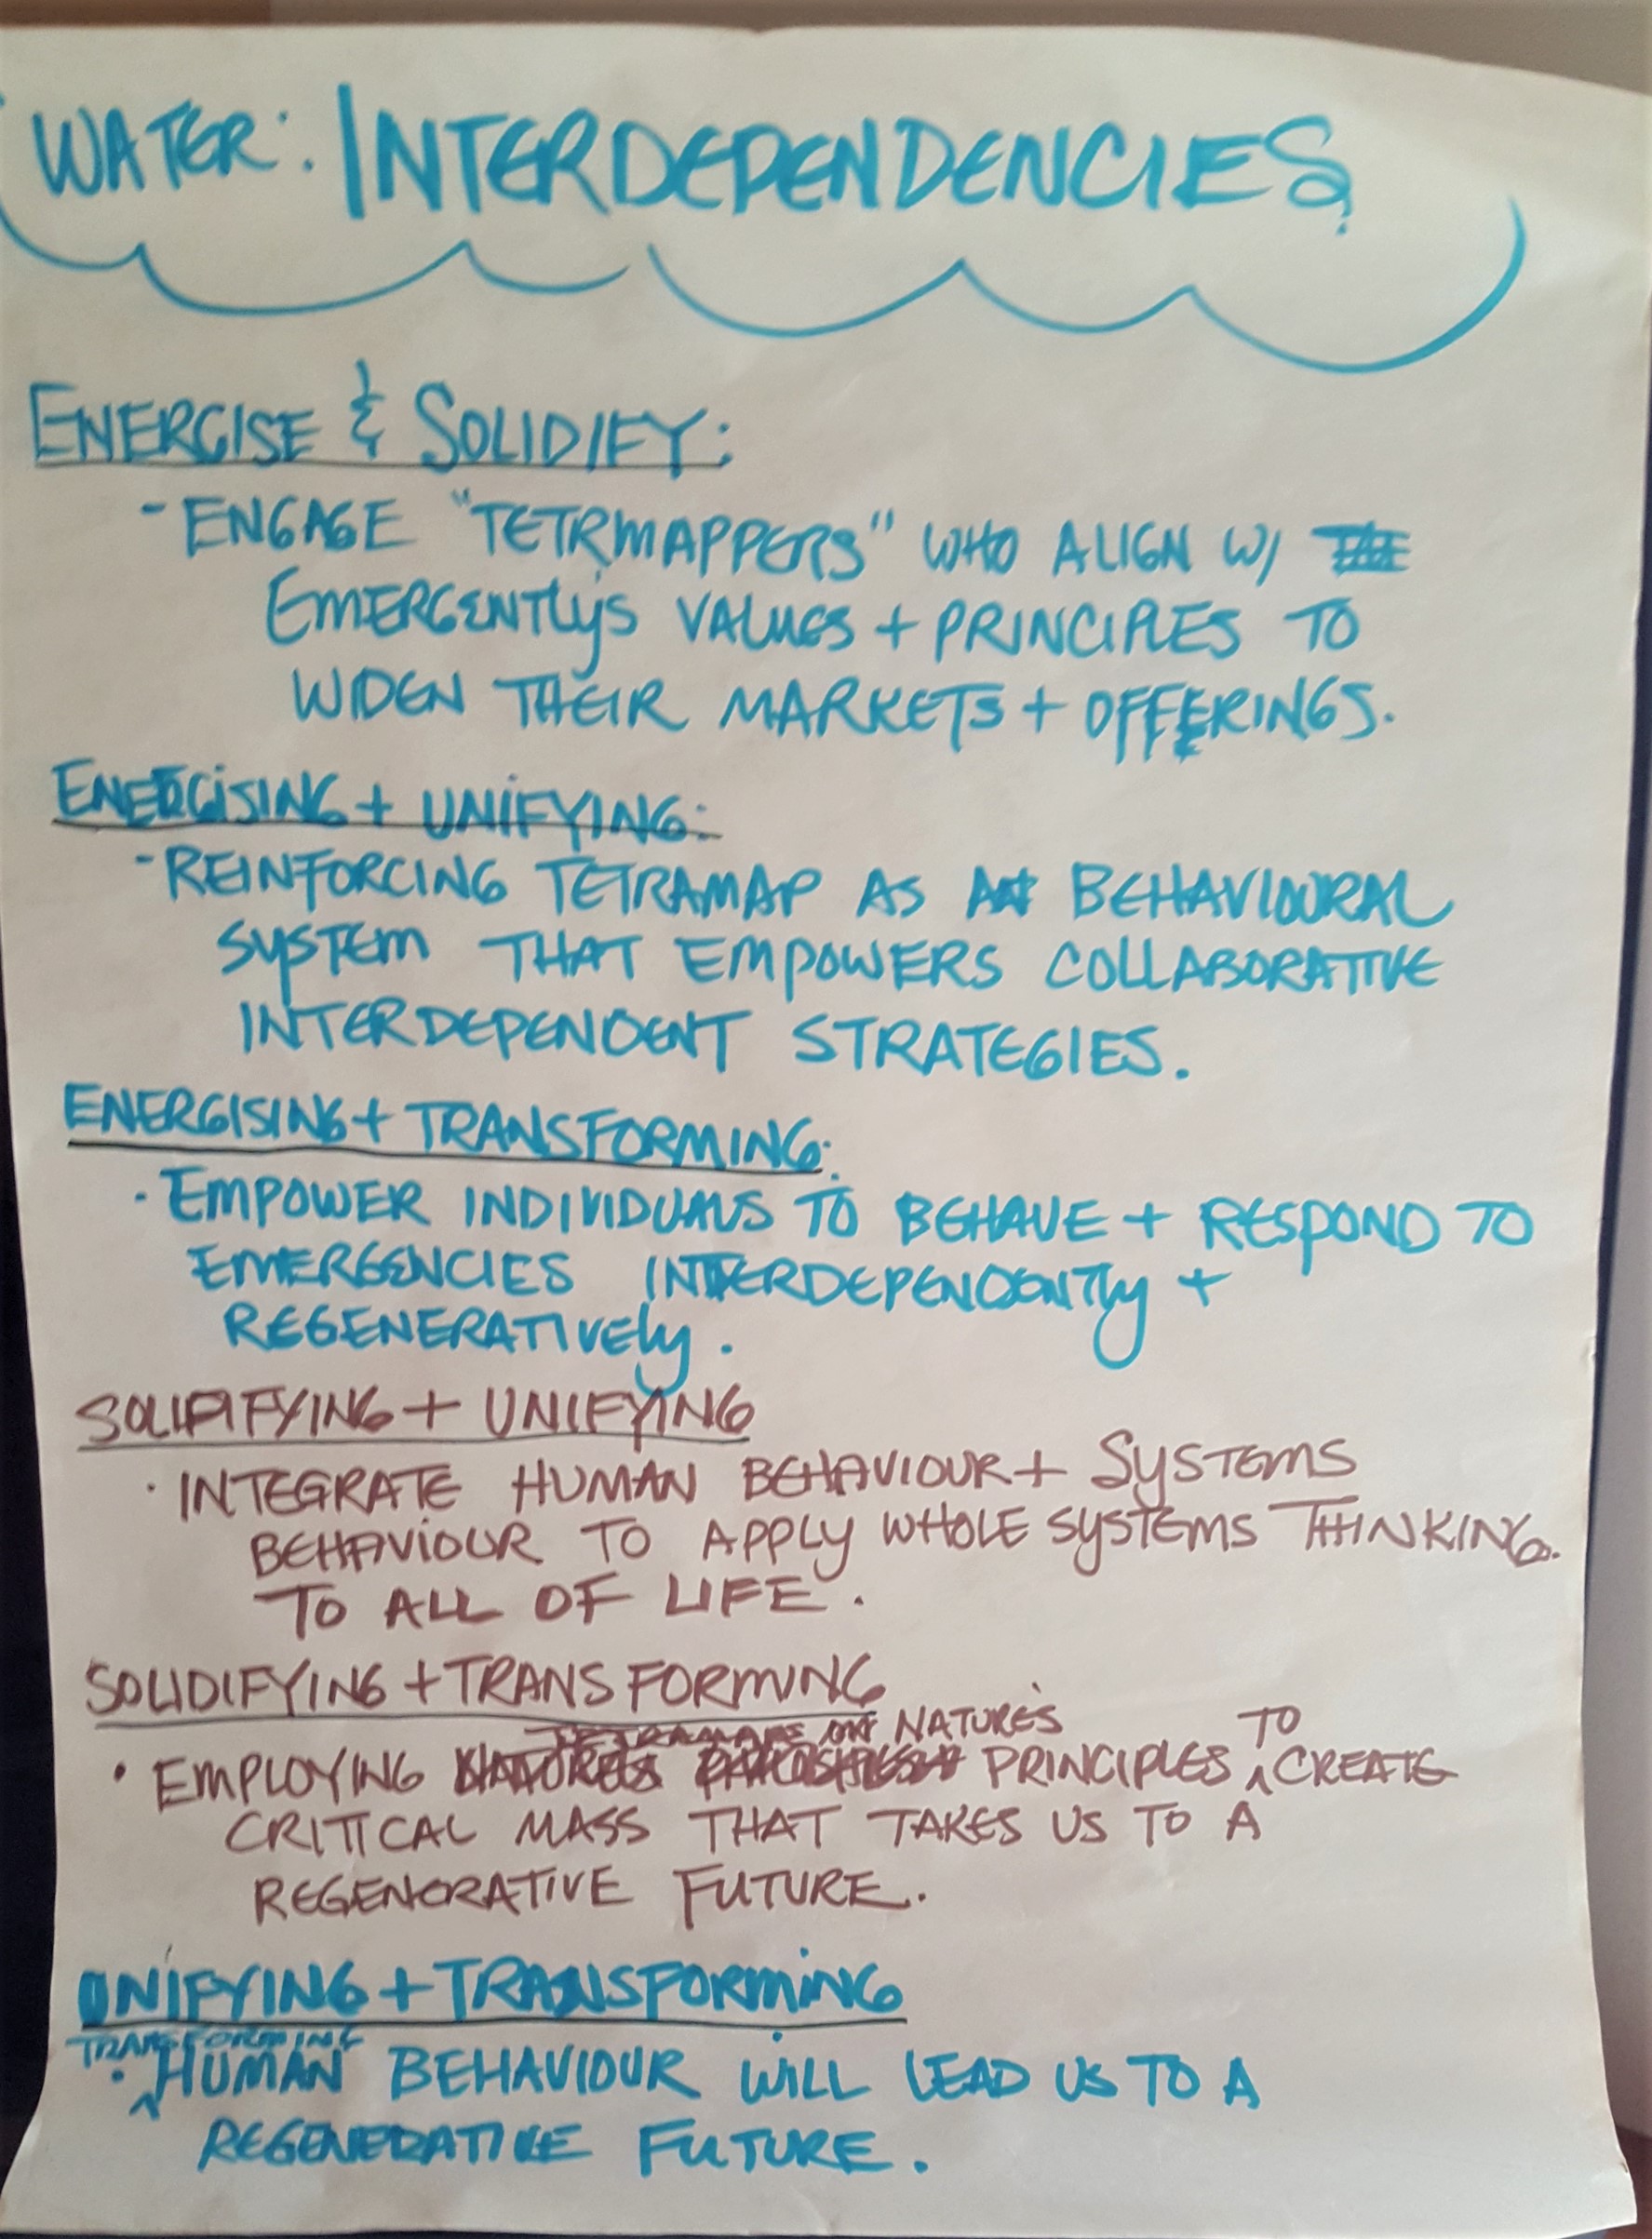 WATER: INTERDEPENDENCIES
ENERGISE & SOLIDIFY:
- ENGAGE "TETRMAPPERS" WHO ALIGN W/
EMERGENTLY'S VALUES + PRINCIPLES TO
WIDEN THEIR MARKETS + OFFERINGS.
ENERGISING + UNIFYING:
- REINFORCING TETRAMAP AS A BEHAVIOURAL
SYSTEM THAT EMPOWERS COLLABORATIVE
INTERDEPENDENT STRATEGIES.
ENERGISING + TRANSFORMING:
· EMPOWER INDIVIDUALS TO BEHAVE + RESPOND TO
EMERGENCIES INTERDEPENDENTLY +
REGENERATIVELY.
SOLIDIFYING + UNIFYING
· INTEGRATE HUMAN BEHAVIOUR + SYSTEMS
BEHAVIOUR TO APPLY WHOLE SYSTEMS THINKING.
TO ALL OF LIFE.
SOLIDIFYING + TRANSFORMING
NATURE'S TO
· EMPLOYING PRINCIPLES ^ CREATE
CRITICAL MASS THAT TAKES US TO A
REGENERATIVE FUTURE.
UNIFYING + TRANSFORMING
TRANSFORMING
· ^ HUMAN BEHAVIOUR WILL LEAD US TO A
REGENERATIVE FUTURE.